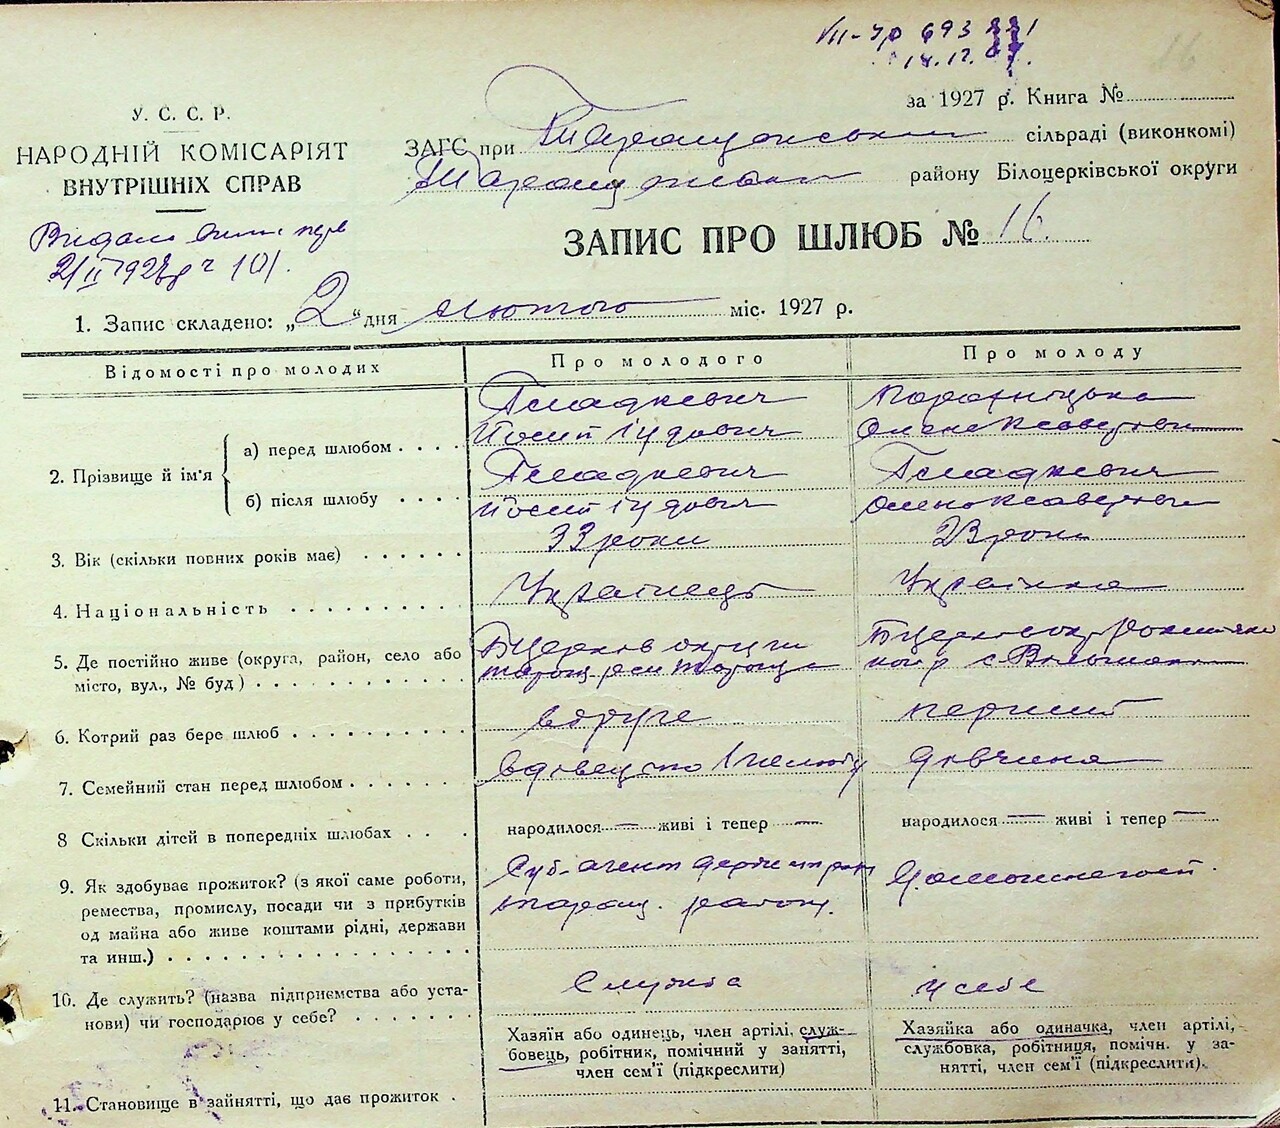 VII-ЧР 693221
14.12.
16
У. С. С. Р.
НАРОДНІЙ КОМІСАРІЯТ
ВНУТРІШНІХ СПРАВ
за 1927 р. Книга №
ЗАГС при Таращанськ сільраді (виконкомі)
Таращанськ району Білоцерківської округи
2/II 1927 р ч 101.
ЗАПИС ПРО ШЛЮБ № 16.
1. Запис складено: „2“ дня лютого міс. 1927 р.
Відомості про молодих
Про молодого
Про молоду
2. Прізвище й ім'я
а) перед шлюбом
Гладкевич
Йосип Іудович
Олена Ксавер
б) після шлюбу
Гладкевич
Йосип Іудович
Гладкевич
Олена Ксавер
3. Вік (скільки повних років має)
33 роки
23 роки
4. Національність
Українець
Українка
5. Де постійно живе (округа, район, село або
місто, вул., № буд)
БЦерків округи
БЦерків окр
6. Котрий раз бере шлюб
вдруге
перший
7. Семейний стан перед шлюбом
вдовец по 1 шлюбу
дівчина
8 Скільки дітей в попередніх шлюбах
народилося — живі і тепер —
народилося — живі і тепер —
9. Як здобуває прожиток? (з якої саме роботи,
ремества, промислу, посади чи з прибутків
од майна або живе коштами рідні, держави
та инш.)
Суб-агент держ
таращ. район.
10. Де служить? (назва підприємства або уста-
нови) чи господарює у себе?
Служба
у себе
11. Становище в зайнятті, що дає прожиток
Хазяїн або одинець, член артілі, служ-
бовець, робітник, помічний у занятті,
член сем'ї (підкреслити)
Хазяйка або одиначка, член артілі,
службовка, робітниця, помічн. у за-
нятті, член сем'ї (підкреслити).